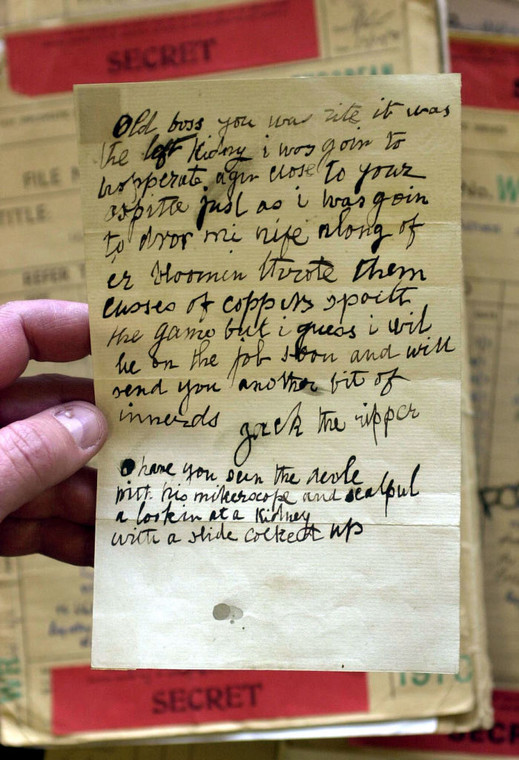 SECRET
FILE N
No. W
TITLE:
REFER T
Old boss you was rite it was
the left kidny i was goin to
hopperate agin close to your
ospitle just as i was goin
to dror mi nife along of
er bloomin throte them
cusses of coppers spoilt
the game but i guess i wil
be on the job soon and will
send you another bit of
innerds Jack the ripper
O have you seen the devle
with his mikerscope and scalpul
a lookin at a Kidney
with a slide cocked up
WR
1970
SECRET
SECR